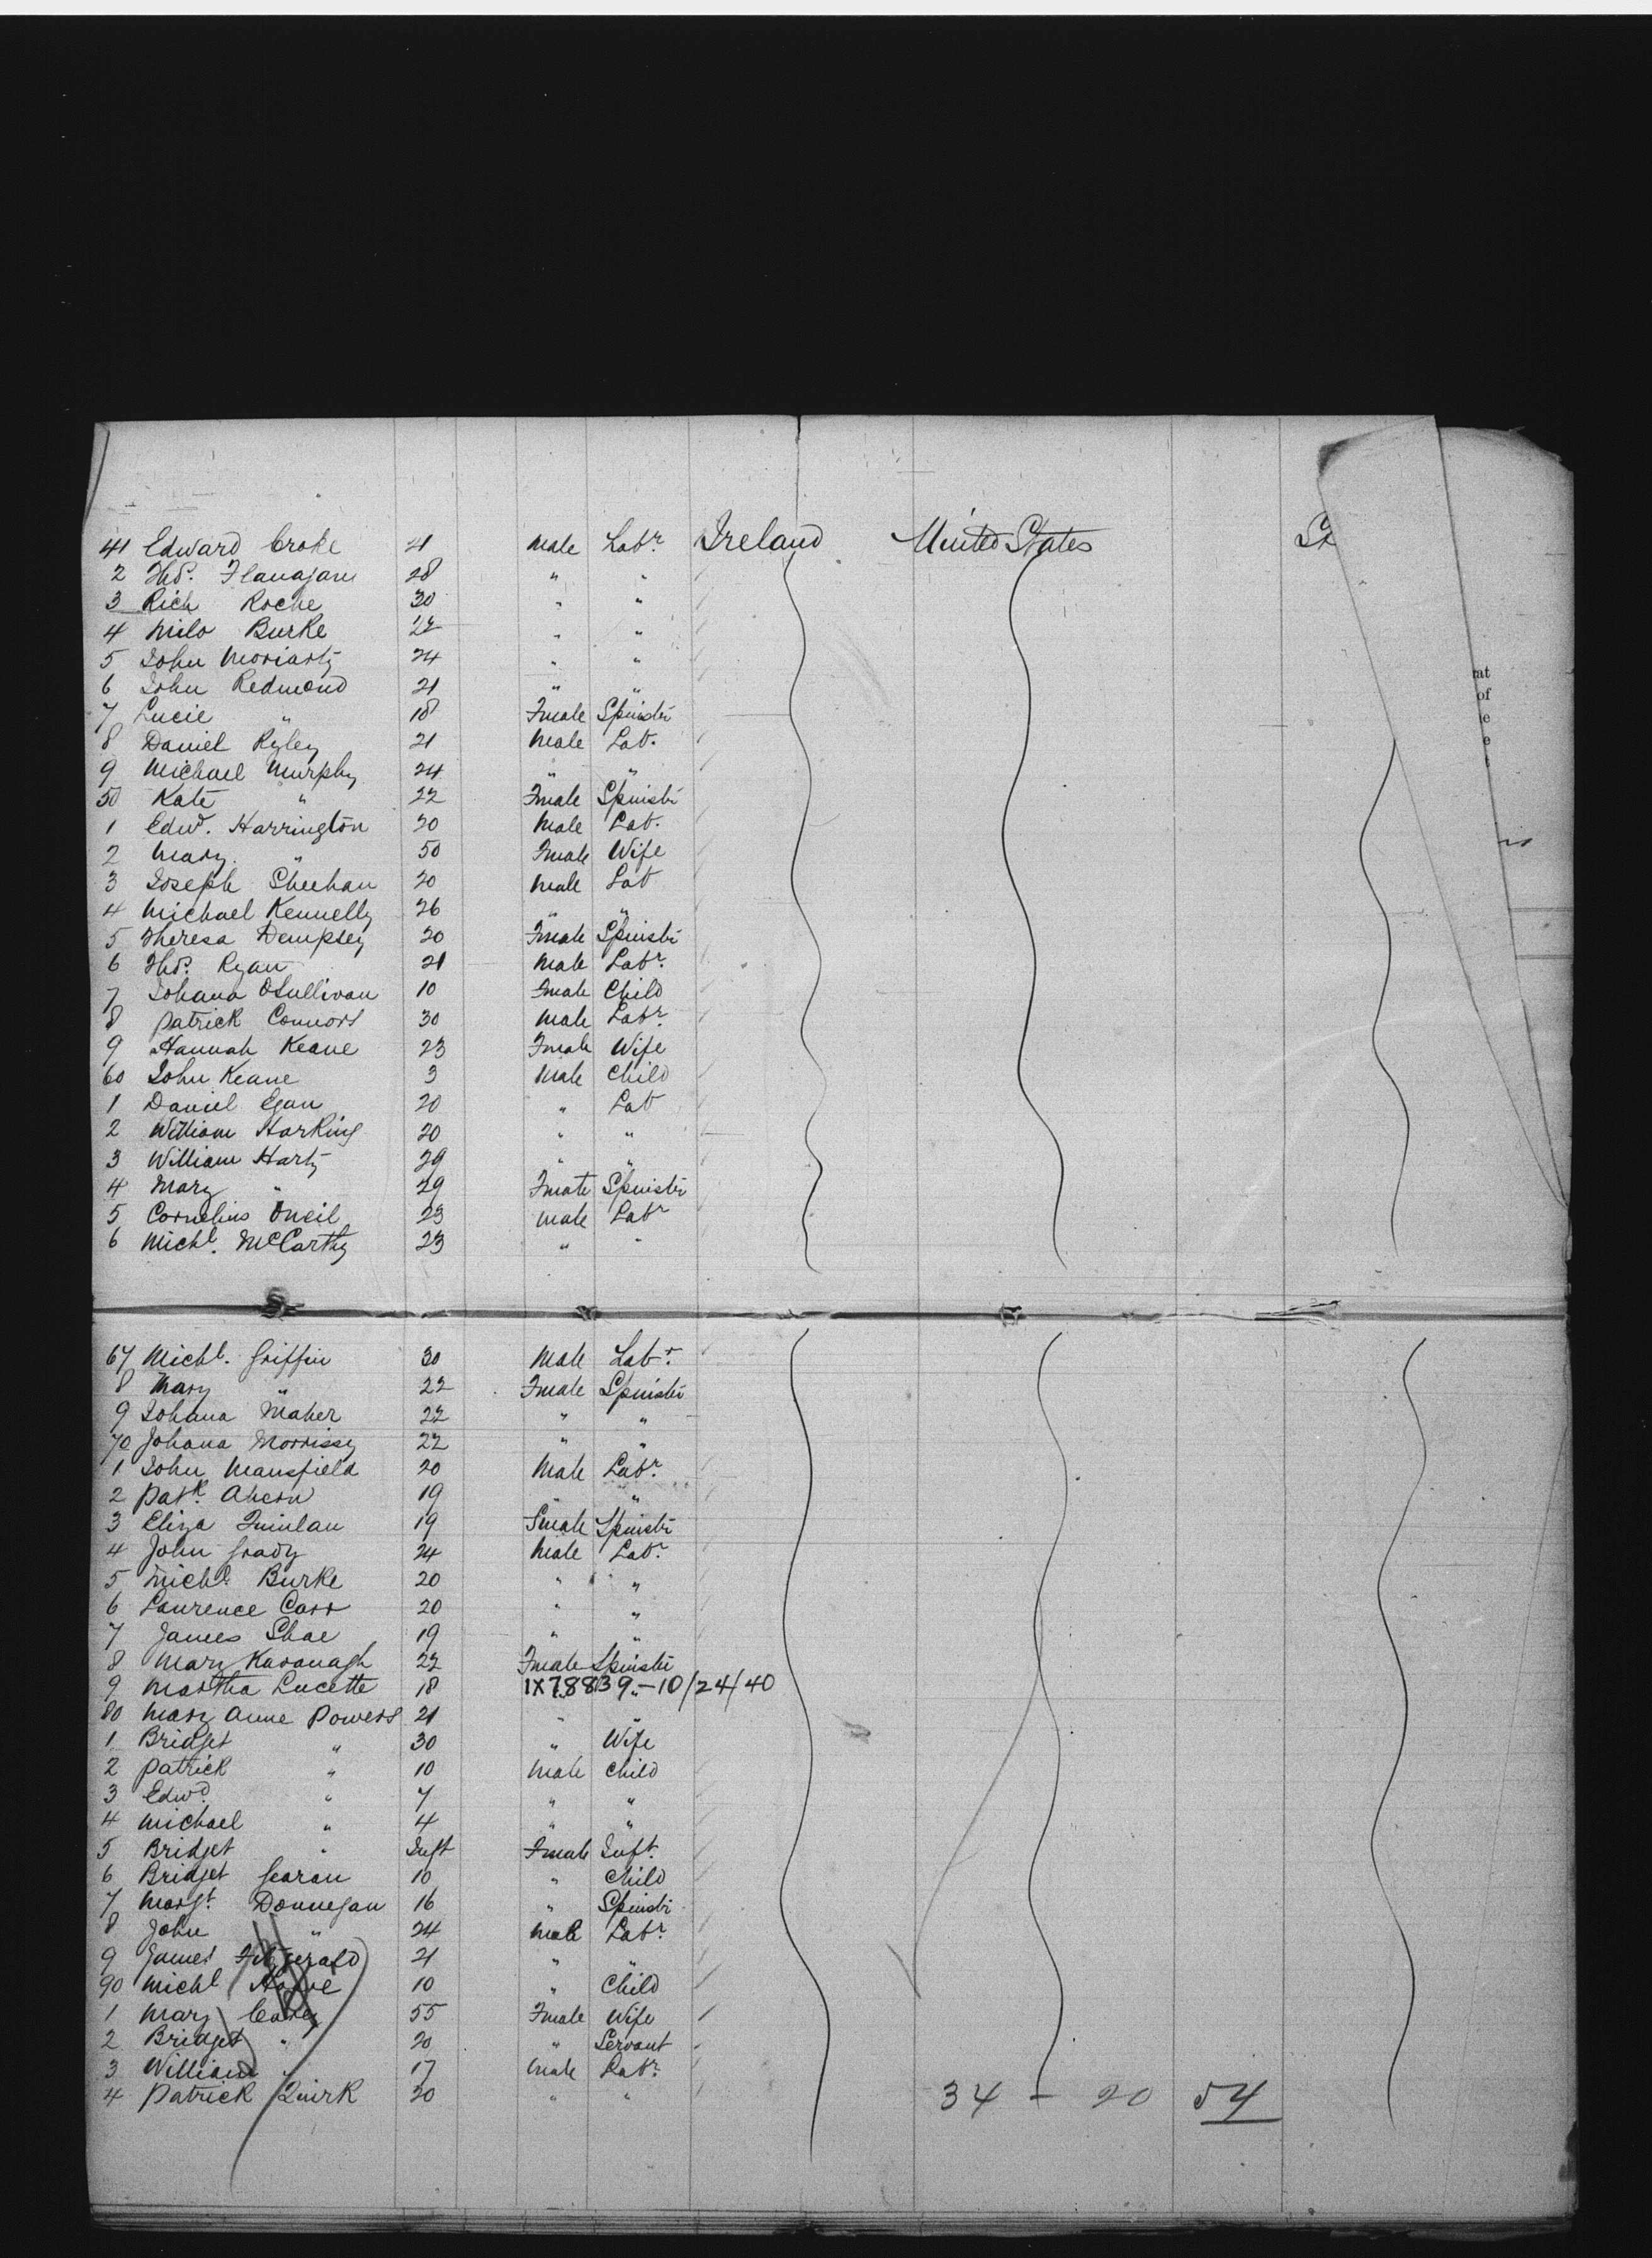 41 Edward Croke 21 Male Labr. Ireland United States St
2 Thos. Flanagan 28 " "
3 Rich Roche 30 " "
4 Milo Burke 22 " "
5 John Moriarty 24 " "
6 John Redmond 21 " "
7 Lucie " 18 Fmale Spinstr
8 Daniel Ryley 21 Male Lab.
9 Michael Murphy 24 " "
50 Kate " 22 Fmale Spinstr
1 Edwd. Harrington 20 Male Lab.
2 Mary " 50 Fmale Wife
3 Joseph Sheehan 20 Male Lab
4 Michael Kennelly 26 " "
5 Theresa Dempsey 20 Fmale Spinstr
6 Thos. Ryan 21 Male Labr.
7 Johana OSullivan 10 Fmale Child
8 Patrick Connors 30 Male Labr.
9 Hannah Keane 23 Fmale Wife
60 John Keane 3 Male Child
1 Daniel Egan 20 " Lab
2 William Harkins 20 " "
3 William Harty 29 " "
4 Mary " 29 Fmale Spinstr
5 Cornelius Oneil 23 Male Labr
6 Michl. McCarthy 23 " "
67 Michl. Griffin 30 Male Labr.
8 Mary " 22 Fmale Spinstr
9 Johana Maher 22 " "
70 Johana Morrissy 22 " "
1 John Mansfield 20 Male Labr.
2 Patk. Ahern 19 " "
3 Eliza Quinlan 19 Fmale Spinstr
4 John Grady 24 Male Labr.
5 Michl. Burke 20 " "
6 Laurence Carr 20 " "
7 James Shae 19 " "
8 Mary Kavanagh 22 Fmale Spinstr
9 Martha Lucette 18 1X78839-10/24/40
80 Mary Anne Powers 21 " "
1 Bridget " 30 " Wife
2 Patrick " 10 Male Child
3 Edwd. " 7 " "
4 Michael " 4 " "
5 Bridget " Inft Fmale Inft.
6 Bridget 10 " Child
7 Margt. Donnegan 16 " Spinstr
8 John " 24 Male Labr.
9 James Fitzgerald 21 " "
90 Michl 10 " Child
1 Mary 55 Fmale Wife
2 Bridget " 20 " Servant
3 William " 17 Male Labr.
4 Patrick Quirk 20 " "
34 - 20 54